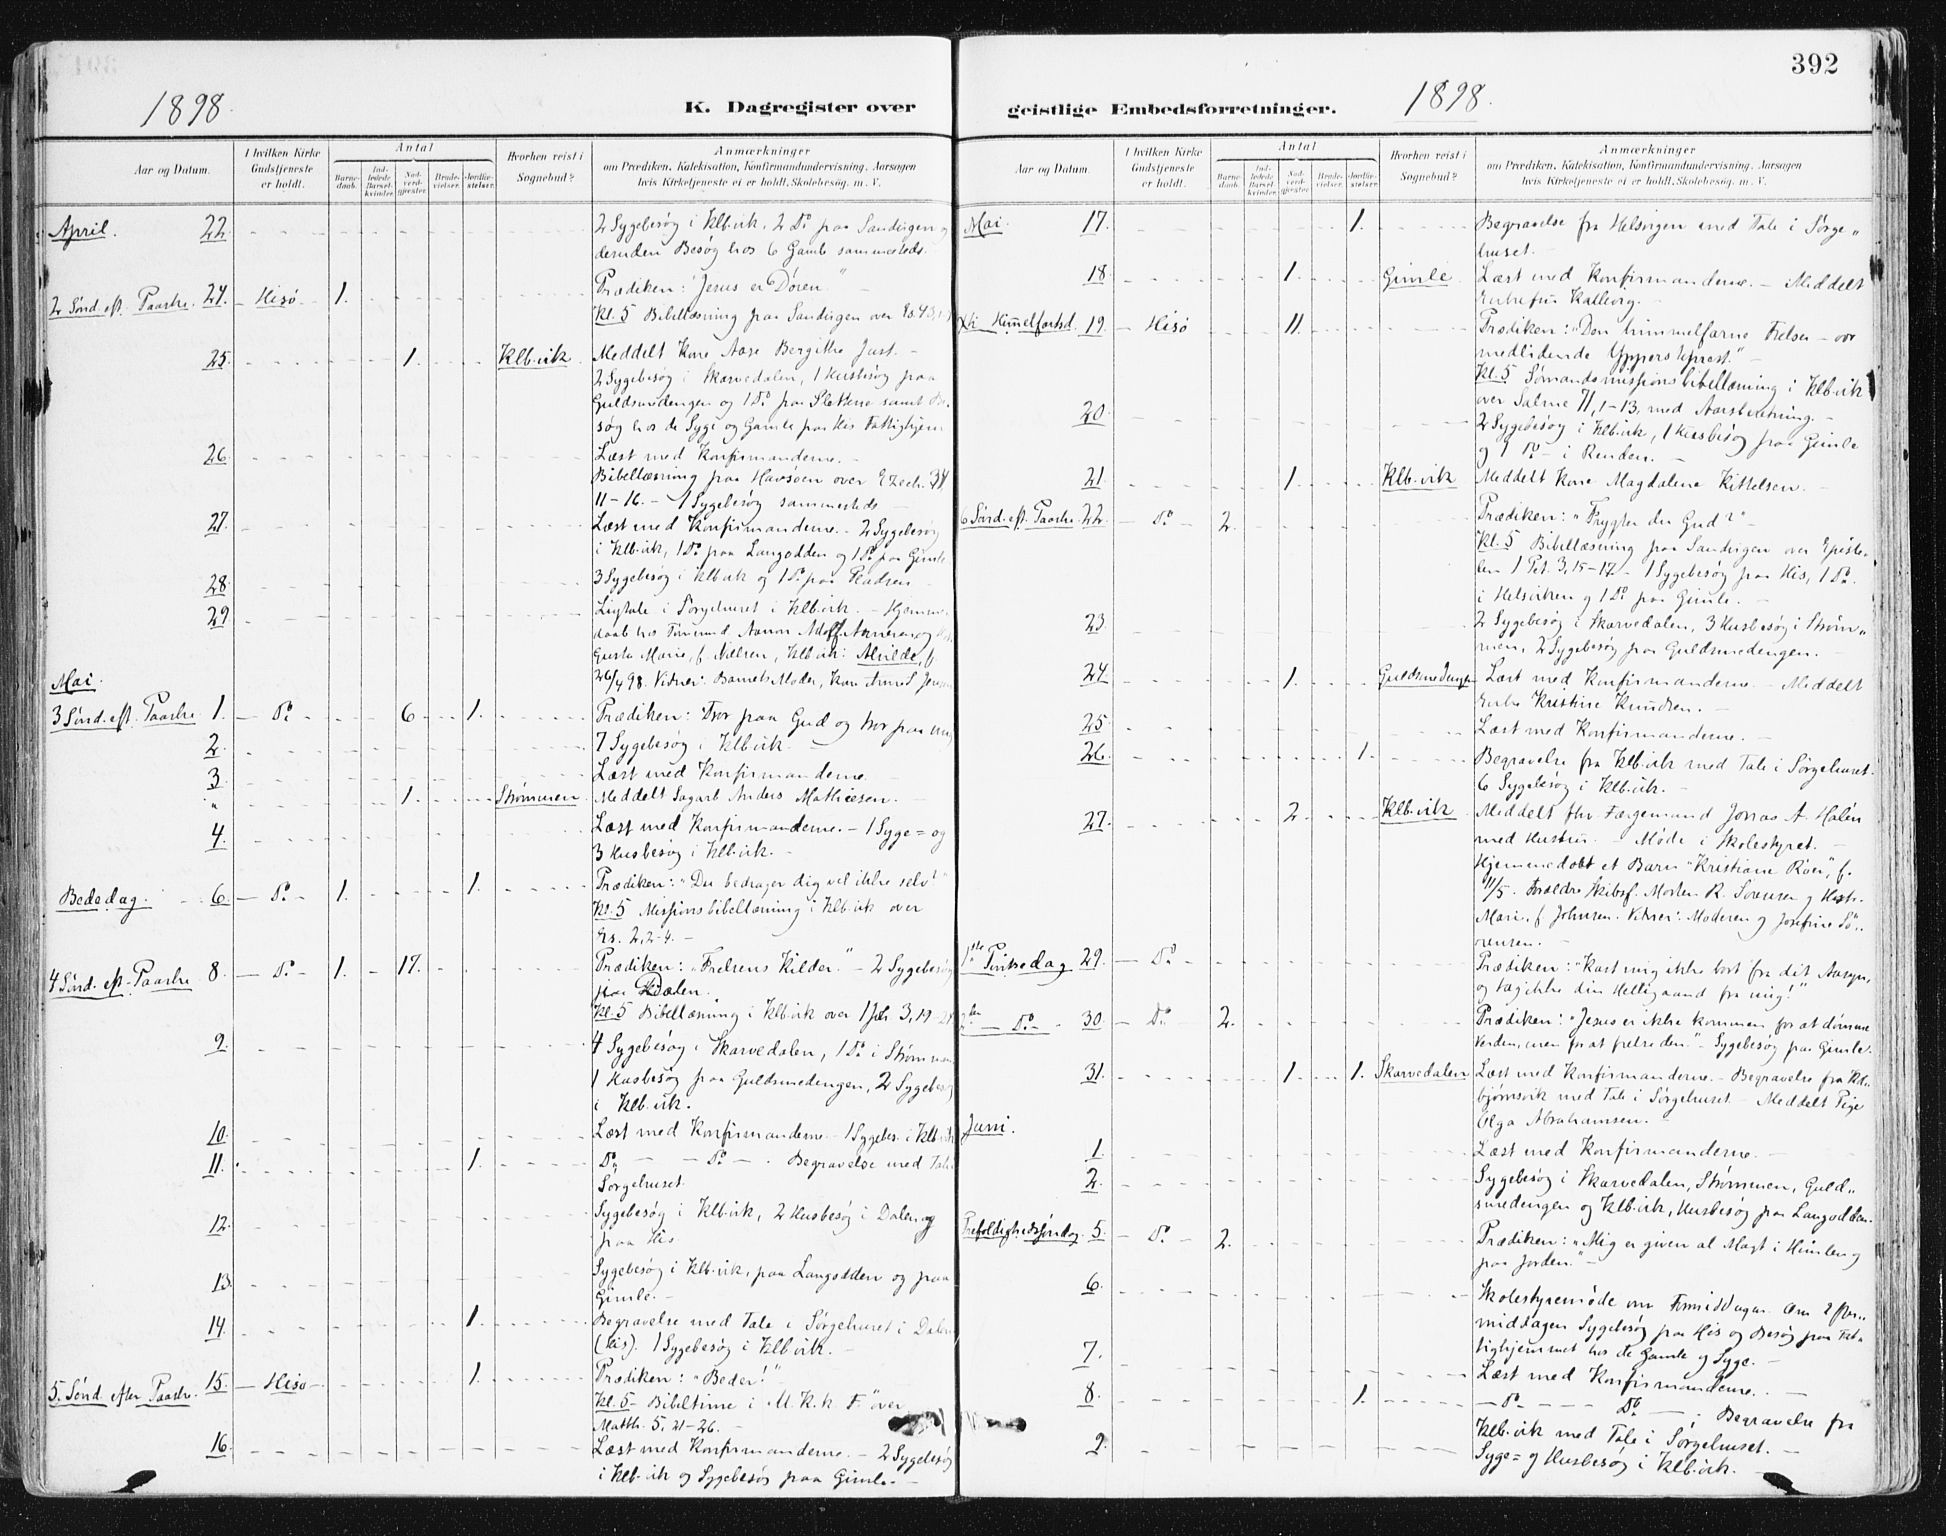 392
1898.
K. Dagregister over
Aar og Datum.
I hvilken Kirke Gudstjeneste er holdt.
Antal
Barnedaab.
Indledede Barselkvinder.
Nadverdgjester.
Brudevielser.
Jordfæstelser.
Hvorhen reist i Sognebud?
Anmærkninger
om Prædiken, Katekisation, Konfirmandundervisning, Aarsagen
hvis Kirketjeneste ei er holdt, Skolebesøg, m. V.
April. 22. 2 Sygebesøg i Klb.vik, 2 Do paa Sandvigen og
desuden Besøg hos 6 Gamle sammesteds.
2 Sønd. eft. Paaske. 24. Hisø 1. Prædiken: "Jesus er Døren"
Kl. 5 Bibellæsning paa Sandvigen over Es. 43,
25. 1. Klb.vik Meddelt Kone Aase Bergithe Just. -
2 Sygebesøg i Skarvedalen, 1 Husbesøg paa
Guldsmedengen og 1 Do paa Slettene samt Be-
søg hos de Syge og Gamle paa His Fattighjem
26. Læst med Konfirmanderne. -
Bibellæsning paa Havsøen over Ezech. 34,
11-16. - 1 Sygebesøg sammesteds
27. Læst med Konfirmanderne. - 2 Sygebesøg
i Klb.vik, 1 Do paa Langodden og 1 Do paa Gimle
28. 3 Sygebesøg i Klb.vik og 1 Do paa
29 Ligtale i Sørgehuset i Klb.vik. - Hjemme-
daab hos
Gusta Marie, f. Nielsen, Klb.vik: Alvilde, f.
26/4 98. Vidner: Barnets Moder, Kone
Mai.
3 Sønd. eft. Paaske 1. Do 6 1. Prædiken: Tror paa Gud og tror paa mig
2. 7 Sygebesøg i Klb.vik.
3. Læst med Konfirmanderne.
" 1. Strømmen. Meddelt Sagarb. Anders Mathiesen. -
4. Læst med Konfirmanderne. - 1 Syge= og
3 Husbesøg i Klb.vik. -
Bededag. 6. Do 1. 1. Prædiken: "Du bedrager dig vel ikke selv?"
Kl. 5 Missionsbibellæsning i Klb.vik over
Es. 2, 2-4. -
4 Sønd. eft. Paaske 8. Do 1. 17. Prædiken: "Frelsens Kilder." - 2 Sygebesøg
paa
Kl. 5 Bibellæsning i Klb.vik over 1 Joh. 3, 19-24
9. 4 Sygebesøg i Skarvedalen, 1 Do i Strømmen
1 Husbesøg paa Guldsmedengen, 2 Sygebesøg
i Klb.vik.
10. Læst med Konfirmanderne. - 1 Sygebes. i Klb.vik
11. 1. Do - - Do - . Begravelse med Tale
Sørgehuset.
12. Sygebesøg i Klb.vik, 2 Husbesøg i Dalen og
paa His
13. Sygebesøg i Klb.vik, paa Langodden og paa
Gimle. -
14. 1. Begravelse med Tale i Sørgehuset i Dalen
(His). 1 Sygebesøg i Klb.vik. -
5. Sønd. efter Paaske. 15. Hisø 1. Prædiken: "Beder!"
Kl. 5 - Bibeltime i "U.K.k F." over
Matth. 5, 21-26. -
16. Læst med Konfirmanderne. - 2 Sygebesøg
i Klb.vik og Sygebesøg paa Gimle. -
geistlige Embedsforretninger.
1898.
Aar og Datum.
I hvilken Kirke Gudstjeneste er holdt.
Antal
Barnedaab.
Indledede Barselkvinder.
Nadverdgjester.
Brudevielser.
Jordfæstelser.
Hvorhen reist i Sognebud?
Anmærkninger
om Prædiken, Katekisation, Konfirmandundervisning, Aarsagen
hvis Kirketjeneste ei er holdt, Skolebesøg, m. V.
Mai. 17. 1. Begravelse fra Helsvigen med Tale i Sørge-
huset.
18. 1. Gimle Læst med Konfirmanderne. - Meddelt
Enkefru Kallevig.
Kr. Himmelfartsd. 19. Hisø 11. Prædiken: "Den himmelfarne Frelser - vor
medlidende Ypperstepræst." -
Kl. 5 Sømandsmissionsbibellæsning i Klb.vik
over Salme 71, 1-13, med Aarsberetning. -
20. 2 Sygebesøg i Klb.vik, 1 Husbesøg paa Gimle
og 1 Do - i Renden. -
21. 1. Klb.vik Meddelt Kone Magdalene Kittelsen. -
6 Sønd. eft. Paaske. 22. Do 2. Prædiken: "Frygter du Gud?" -
Kl. 5 Bibellæsning paa Sandvigen over Episte-
len 1 Pet. 3, 15-17. - 1 Sygebesøg paa His, 1 Do
i Helsviken og 1 Do paa Gimle. -
23. 2 Sygebesøg i Skarvedalen, 3 Husbesøg i Strøm-
men, 2 Sygebesøg paa Guldsmedengen. -
24. 1. Guldsmedengen Læst med Konfirmanderne. - Meddelt
Enke Kristine Knudsen. -
25. Læst med Konfirmanderne. -
26. 1. Begravelse fra Klb.vik med Tale i Sørgehuset.
6 Sygebesøg i Klb.vik. -
27. 2. Klb.vik Meddelt fhv. Færgemand Jonas A. Halén
med Hustru. - Møde i Skolestyret. -
Hjemmedøbt et Barn "Kristiane Røer", f.
11/5. Forældre Skibsf. Morten R. Sørensen og Hustr.
Marie, f. Johnsen. Vidner: Moderen og Josefine Sø-
rensen. -
1ste Pinsedag 29. Do Prædiken: "Kast mig ikke bort fra dit Aasyn,
og tag ikke din Helligaand fra mig!"
2den - Do - 30. Do 2. Prædiken: "Jesus er ikke kommen for at dømme
Verden, men for at frelse den." - Sygebesøg paa Gimle.
31. 1. 1. Skarvedalen Læst med Konfirmanderne. - Begravelse fra Kol-
bjørnsvik med Tale i Sørgehuset. - Meddelt Pige
Olga Abrahamsen. -
Juni.
1. Læst med Konfirmanderne. -
2. Sygebesøg i Skarvedalen, Strømmen, Guld-
smedengen og Klb.vik, Husbesøg paa Langodden.
Trefoldighedssøndag. 5. Do 2. Prædiken: "Mig er given al Magt i Himlen og
paa Jorden." -
6. Skolestyremøde om Formiddagen. Om Efter-
middagen Sygebesøg paa His og Besøg paa Fat-
tighjemmet hos de Gamle og Syge. -
7. Læst med Konfirmanderne. -
8. 1. - Do - - - - Do - . Begravelse fra
Klb.vik med Tale i Sørgehuset. -
9. Syge= og Husbesøg i Klb.vik. -